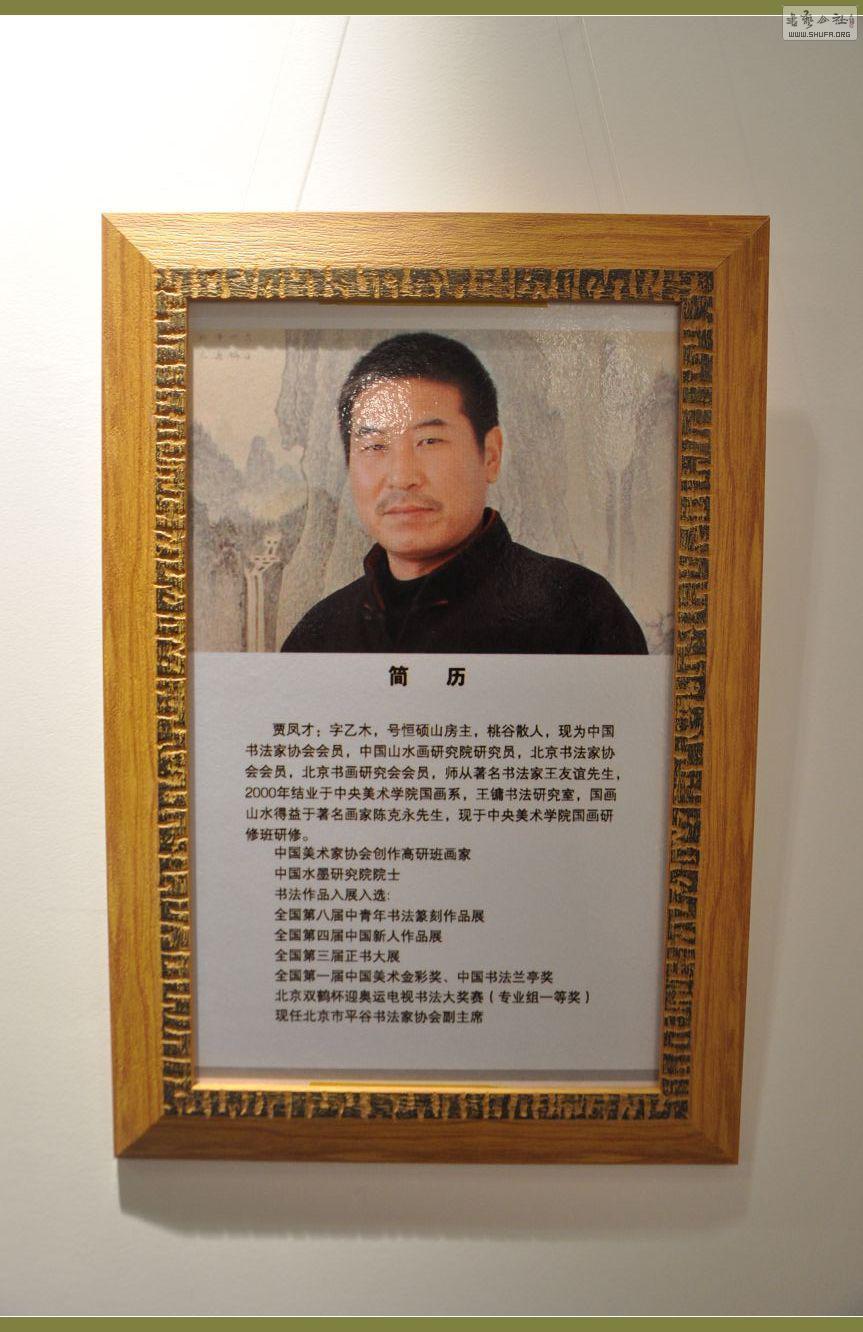 书艺公社
WWW.SHUFA.ORG
简 历
贾凤才：字乙木，号恒硕山房主，桃谷散人，现为中国
书法家协会会员，中国山水画研究院研究员，北京书法家协
会会员，北京书画研究会会员，师从著名书法家王友谊先生，
2000年结业于中央美术学院国画系，王镛书法研究室，国画
山水得益于著名画家陈克永先生，现于中央美术学院国画研
修班研修。
中国美术家协会创作高研班画家
中国水墨研究院院士
书法作品入展入选：
全国第八届中青年书法篆刻作品展
全国第四届中国新人作品展
全国第三届正书大展
全国第一届中国美术金彩奖、中国书法兰亭奖
北京双鹤杯迎奥运电视书法大奖赛（专业组一等奖）
现任北京市平谷书法家协会副主席